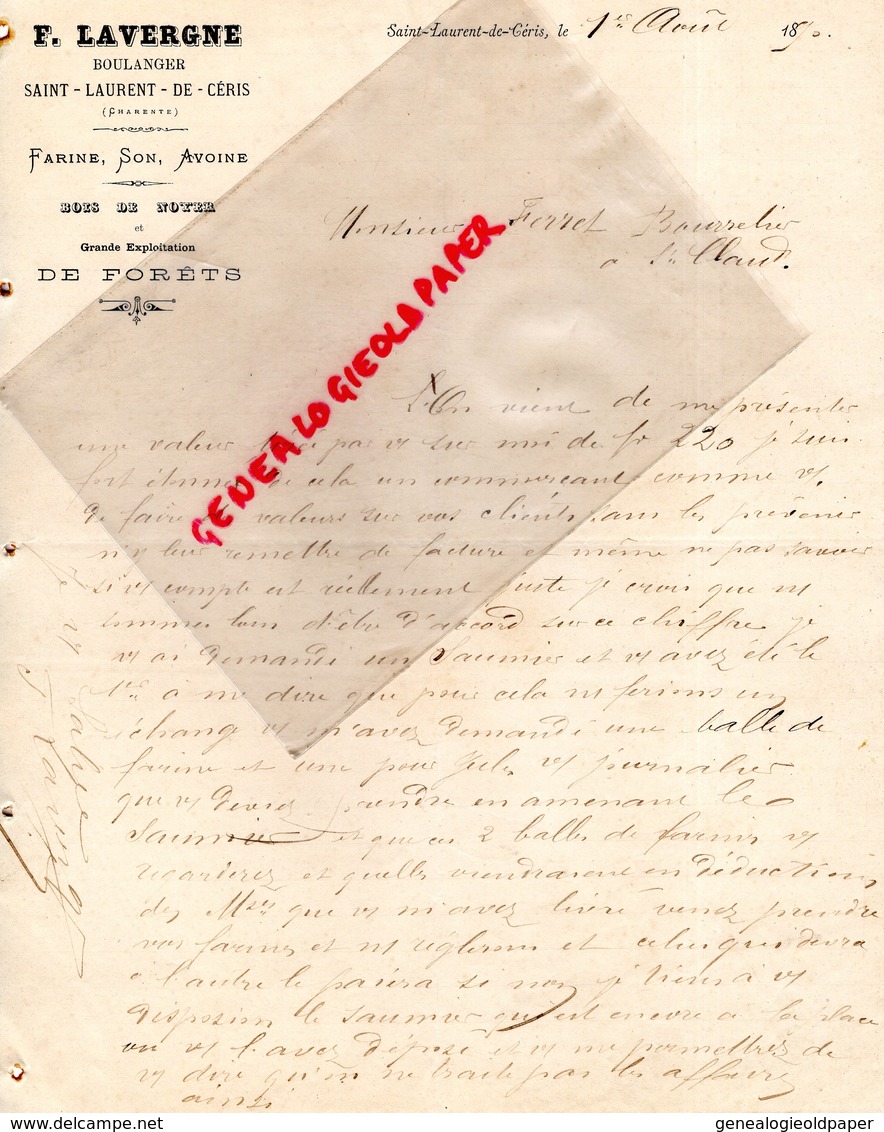 F. LAVERGNE
BOULANGER
SAINT-LAURENT-DE-CÉRIS
(CHARENTE)
FARINE, SON, AVOINE
BOIS DE NOYER
et
Grande Exploitation
DE FORÊTS
Saint-Laurent-de-Céris, le 1er Août 18
Monsieur Ferret Bourrelier
a St Claud.
GENEALOGIEOLDPAPER
On vient de me présenter
une valeur par vs sur moi de fr 220 je suis
fort étonné de cela un commercant comme vs
de faire valeurs sur vos clients sans les prévenir
ni leur remettre de facture et même ne pas savoir
si vs compte est réellement juste je crois que ns
sommes loin d'être d'accord sur ce chiffre je
vs ai demandé un Saumier et vs avez été le
1er à me dire que pour cela ns ferions un
échang vs m'avez demandé une balle de
farine et une pour Jules vs journalier
que vs devrez prendre en amenant le
Saumier et que ces 2 balles de farines vs
regarderez et quelles viendraient en déduction
des Mses que vs m'avez livré venez prendre
vos farines et ns règlerons et celui qui devra
à l'autre le paiera si non je tiens à vs
disposion le Saumier qui est encore a la place
ou vs l'avez déposé et vs me permettrez de
vs dire qu'on ne traite pas les affaires
ainsi
Je vs salue
F Lavergne
genealogieoldpaper